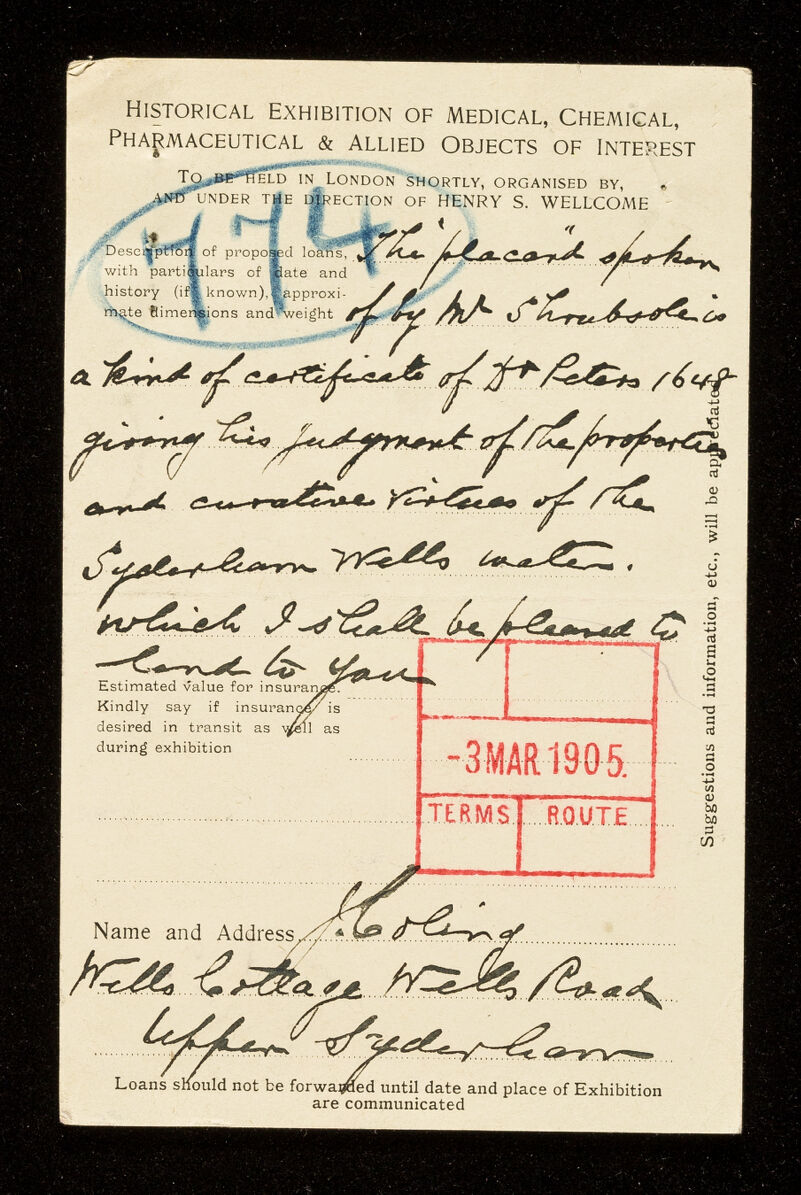 HISTORICAL EXHIBITION OF MEDICAL, CHEMICAL,
PHARMACEUTICAL & ALLIED OBJECTS OF INTEREST
TO BE HELD IN LONDON SHORTLY, ORGANISED BY,
AND UNDER THE DIRECTION OF HENRY S. WELLCOME
774
Description of proposed loans,
with particulars of date and
history (if known), approxi-
mate dimensions and weight
The "placard" spoken
of by Mr Shrubsole is
a kind of certificate of Dr Peters 1648
giving his judgment of the properties
and curative virtues of the
Syderham Wells water.
which I shall be pleased to
lend to you
Estimated value for insurance.
Kindly say if insurance is
desired in transit as well as
during exhibition
-3 MAR. 1905.
TERMS ROUTE
Name and Address J. Coling
Wells Cottage Wells Road
Upper Syderham
Loans should not be forwarded until date and place of Exhibition
are communicated
Suggestions and information, etc., will be appreciated